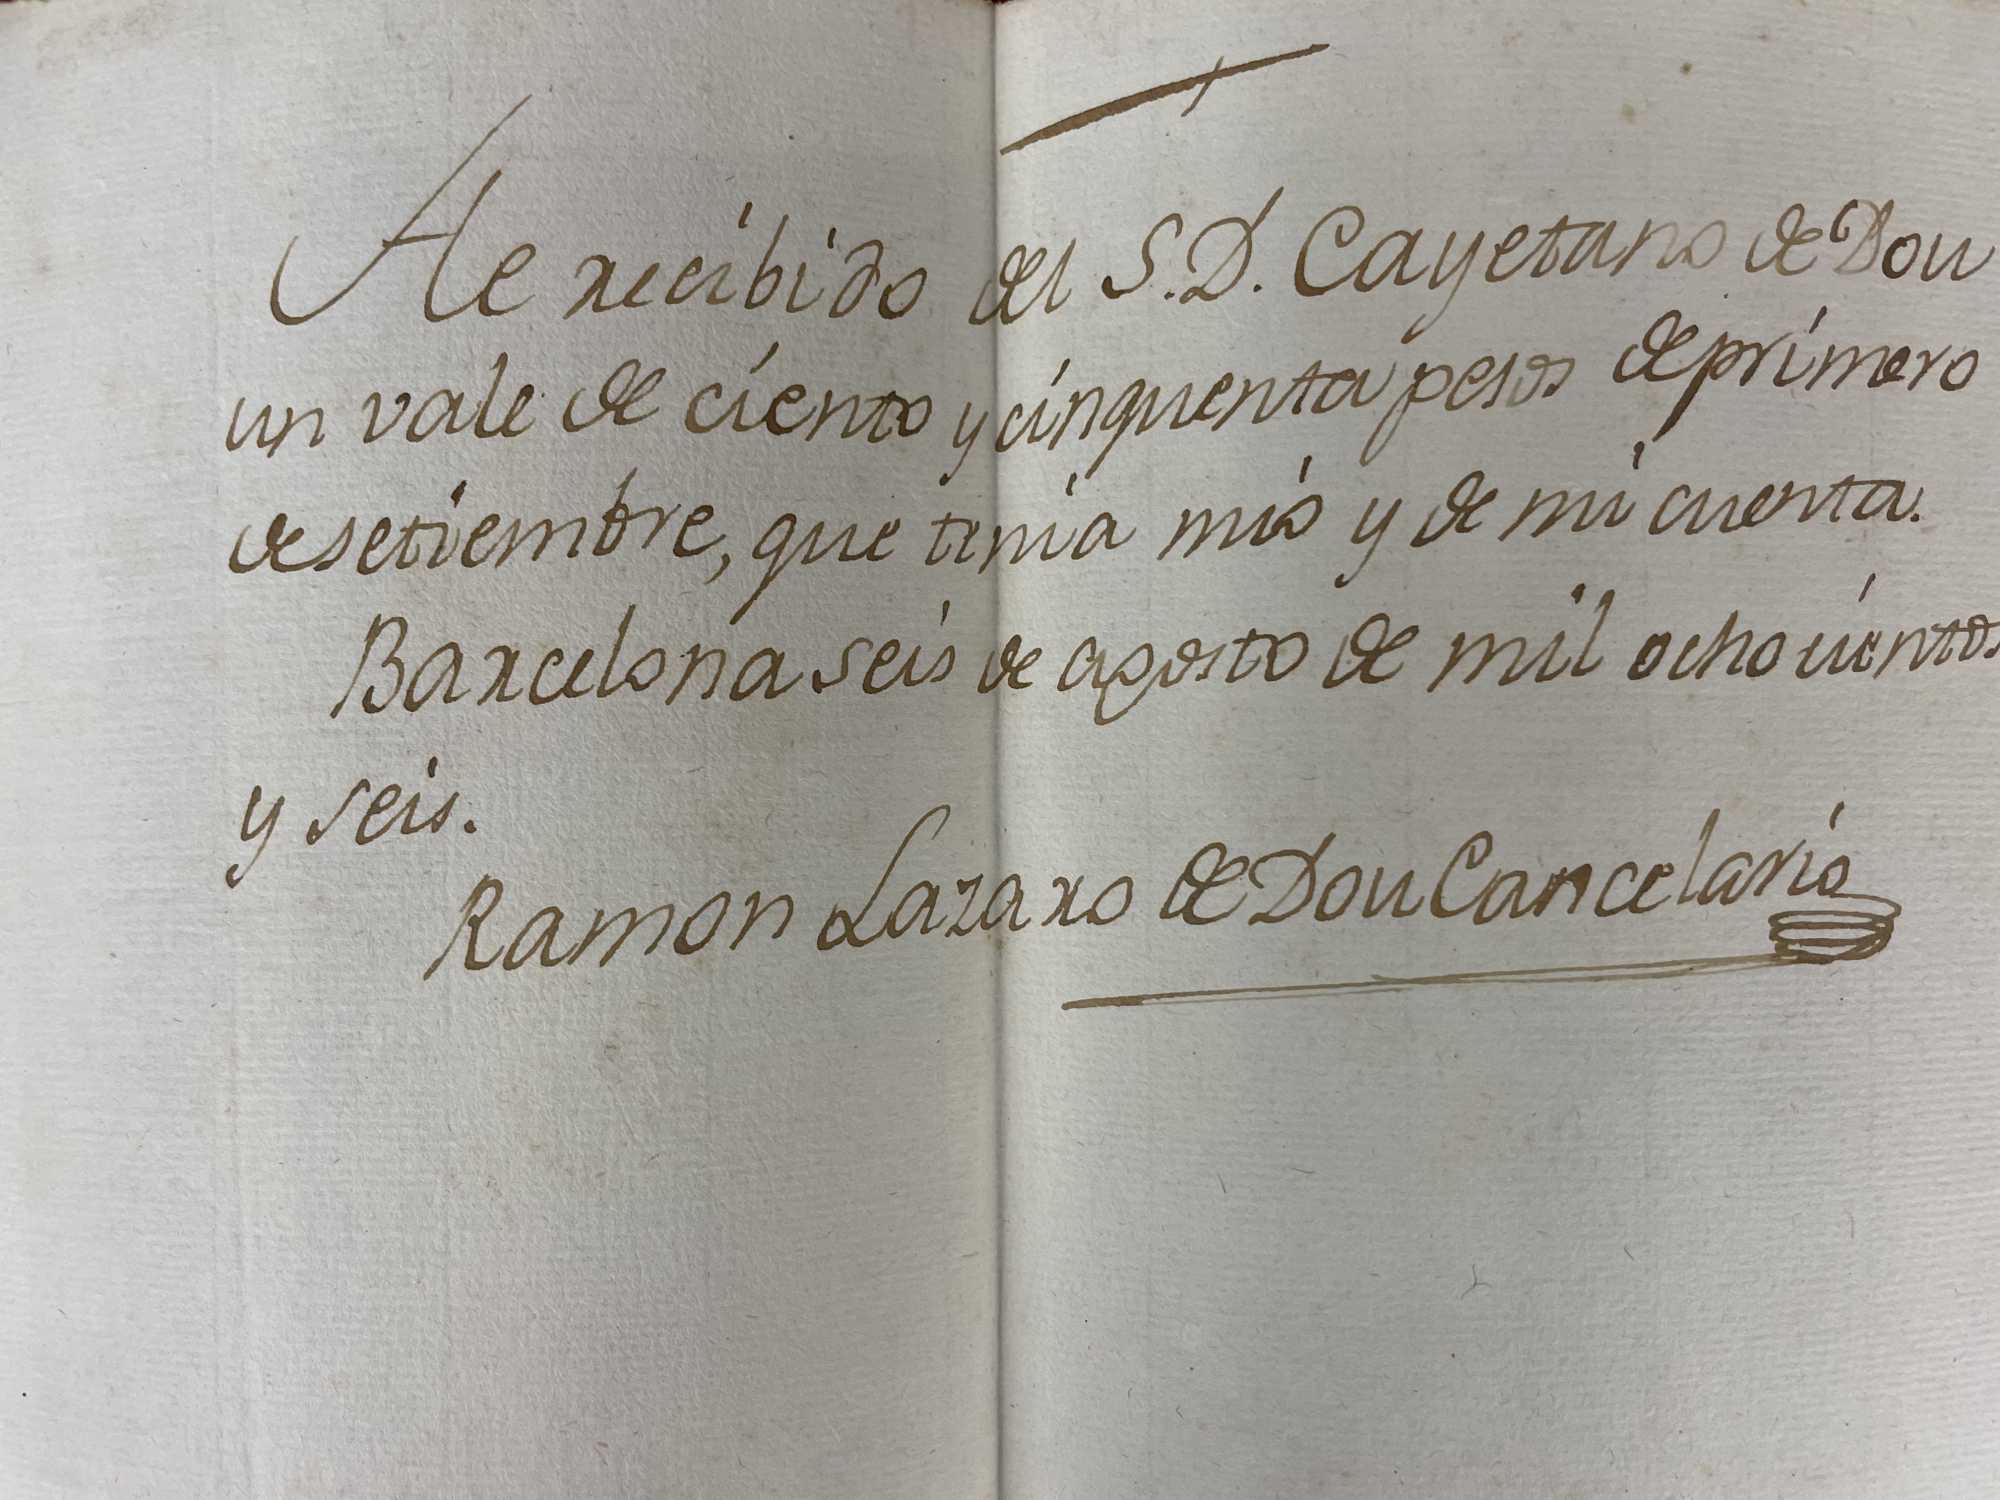 He recibido del S.D. Cayetano de Dou
un vale de ciento y cinquenta pesos de primero
de setiembre, que tenia mio y de mi cuenta.
Barcelona seis de agosto de mil ochocientos
y seis.
Ramon Lazaro de Dou Cancelario